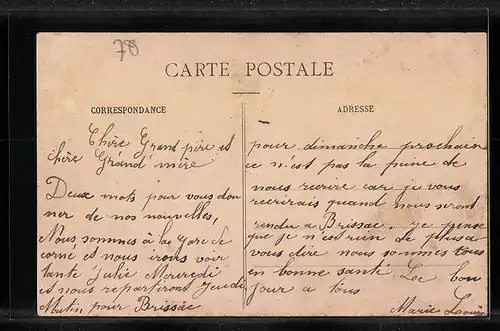 78
CARTE POSTALE
CORRESPONDANCE
Chère Grand père et
chère Grand mère
Deux mots pour vous don
ner de nos nouvelles,
Nous sommes à la gare de
corné et nous irons voir
tante Julie Mercredi
et nous repartiront Jeudi
Matin pour Brissac
ADRESSE
pour dimanche prochain
ce n'est pas la peine de
nous recrire car je vous
recrirais quand nous seront
rendu a Brissac. Je pense
que je n'est rien de plus a
vous dire nous sommes tous
en bonne santé. Le bon
jour a tous
Marie Louise